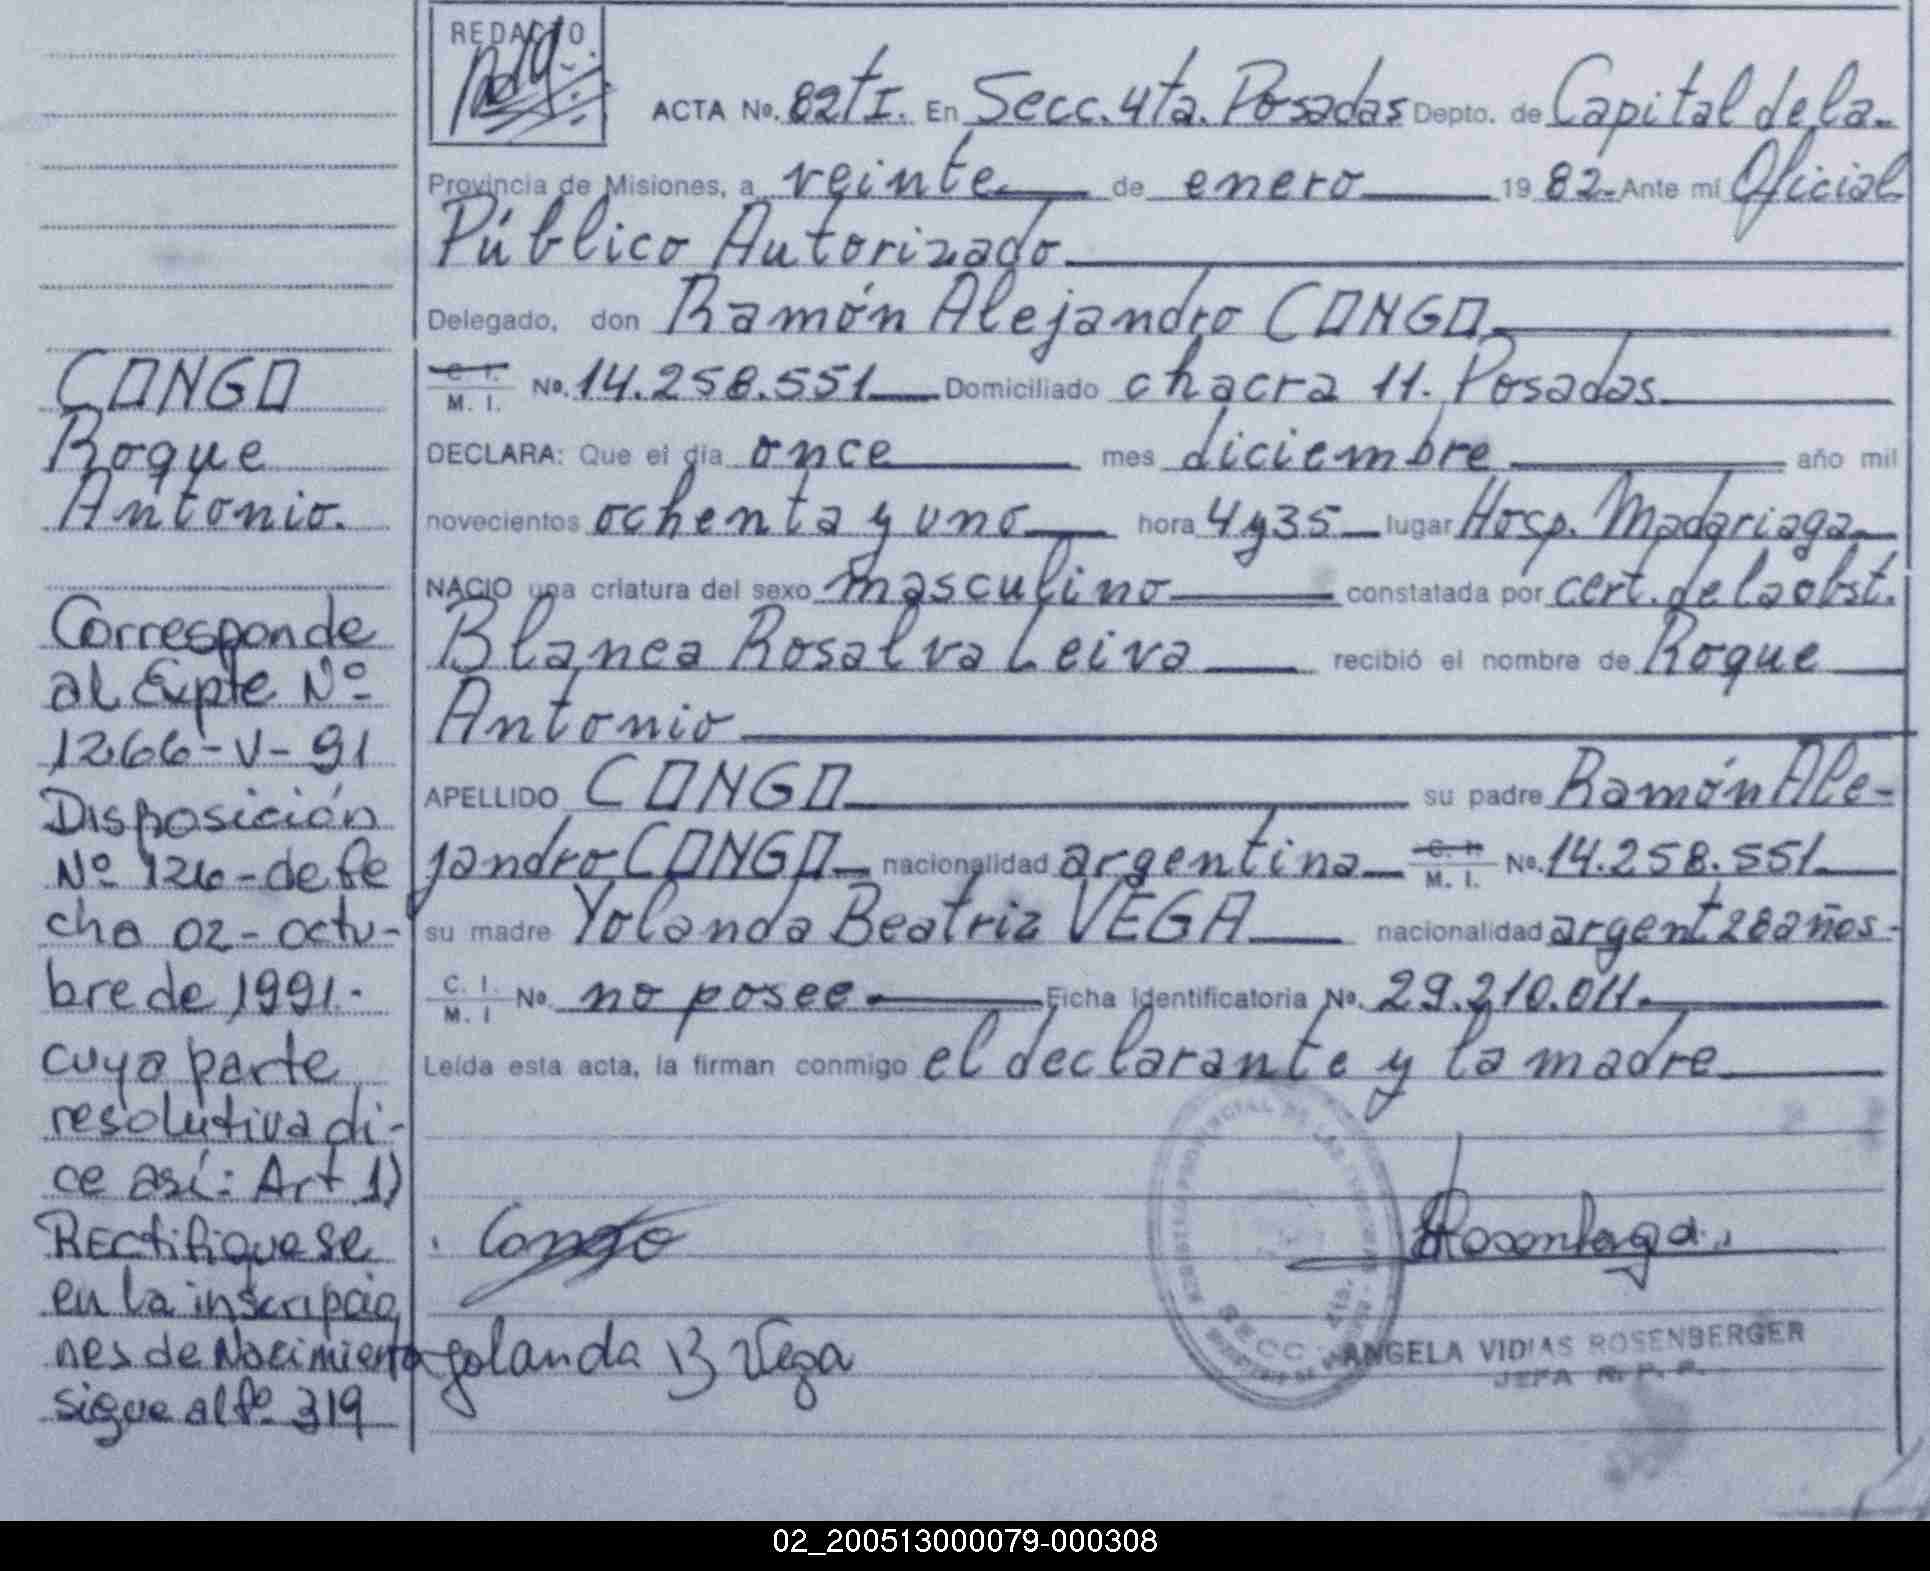 REDACTO
ACTA No. 82 tI. En Secc. 4ta. Posadas Depto. de Capital de la
Provincia de Misiones, a veinte de enero 1982- Ante mí Oficial
Público Autorizado
Delegado, don Ramón Alejandro CONGO
C. I. M. I. No. 14.258.551 Domiciliado chacra 11. Posadas
DECLARA: Que el día once mes diciembre año mil
novecientos ochenta y uno hora 4 y 35 lugar Hosp. Madariaga
NACIO una criatura del sexo masculino constatada por cert. de la obst.
Blanca Rosalva Leiva recibió el nombre de Roque
Antonio
APELLIDO CONGO su padre Ramón Ale-
jandro CONGO nacionalidad argentina C. I. M. I. No. 14.258.551
su madre Yolanda Beatriz VEGA nacionalidad argent 28 años-
C. I. M. I No. no posee Ficha Identificatoria No. 29.210.011.
Leída esta acta, la firman conmigo el declarante y la madre
CONGO
Roque
Antonio.
Corresponde
al Expte Nº
1266-V-91
Disposición
Nº 126-de fe
cha 02-octu-
bre de 1991.-
cuya parte
resolutiva di-
ce así: Art 1)
Rectifiquese
en la inscripcio
nes de Nacimiento
sigue al fº 319
Congo
Yolanda B Vega
SECC. 4ta.
ANGELA VIDIAS ROSENBERGER
JEFA R. P. P.
02_200513000079-000308